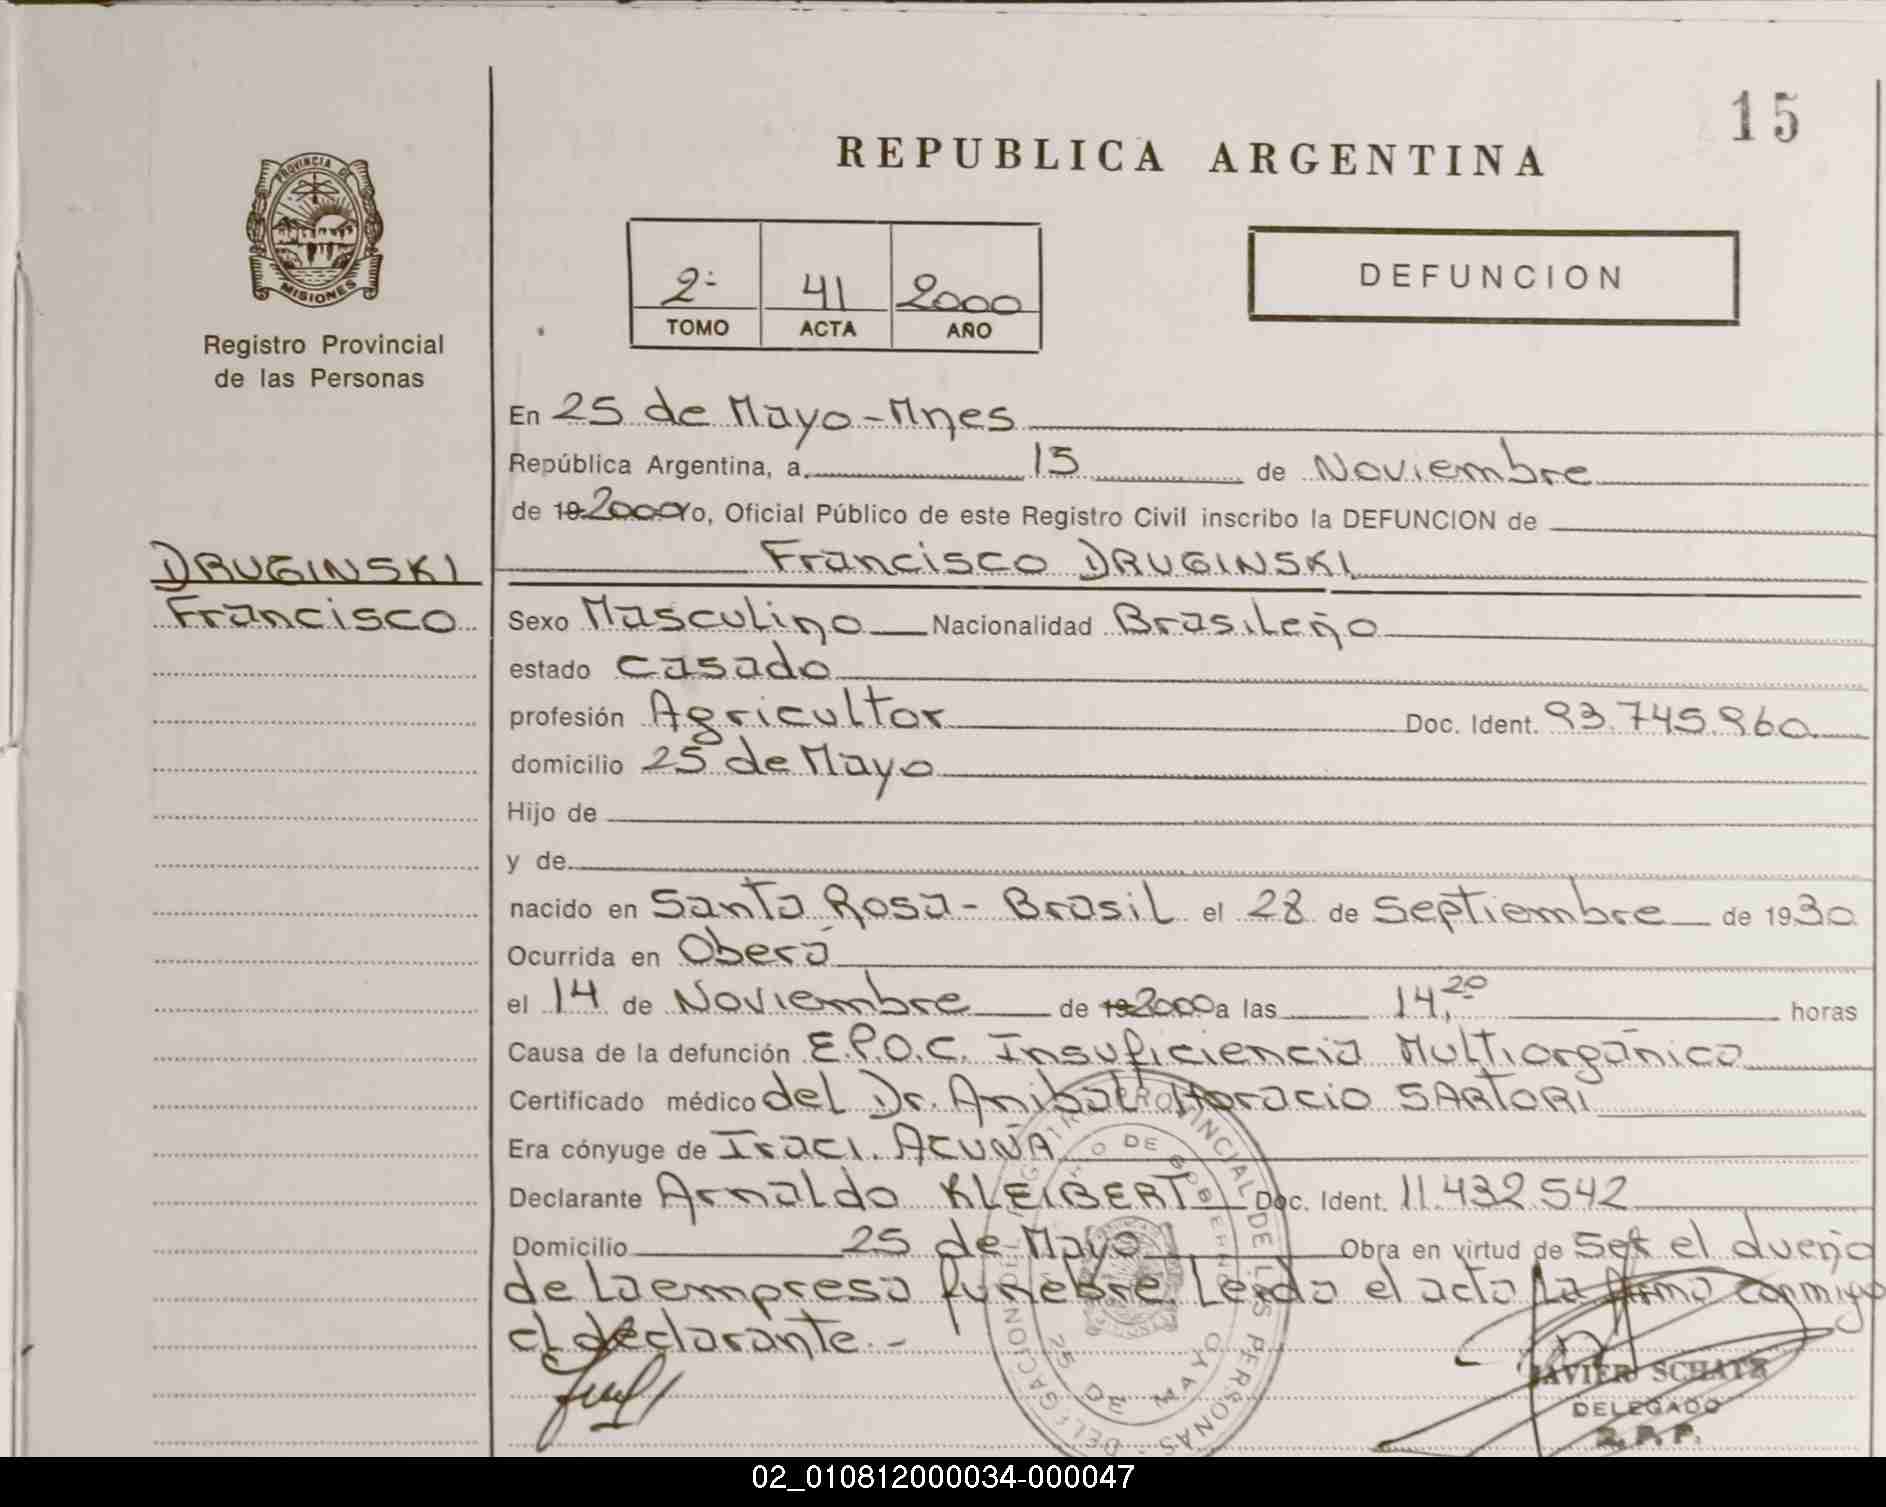 15
REPUBLICA ARGENTINA
PROVINCIA DE
MISIONES
Registro Provincial
de las Personas
2- 41 2000
TOMO ACTA AÑO
DEFUNCION
En 25 de Mayo-Mnes
República Argentina, a 15 de Noviembre
de 19 2000 Yo, Oficial Público de este Registro Civil inscribo la DEFUNCION de
DRUGINSKI
Francisco
Francisco DRUGINSKI
Sexo Masculino Nacionalidad Brasileño
estado casado
profesión Agricultor Doc. Ident. 93.745.960
domicilio 25 de Mayo
Hijo de
y de
nacido en Santa Rosa - Brasil el 28 de Septiembre de 1930
Ocurrida en Oberá
el 14 de Noviembre de 19 2000 a las 14,20 horas
Causa de la defunción E.P.O.C. Insuficiencia Multiorgánica
Certificado médico del Dr. Anibal Horacio SARTORI
Era cónyuge de Iraci. ACUÑA
Declarante Arnaldo KLEIBERT Doc. Ident. 11.432.542
Domicilio 25 de Mayo Obra en virtud de Ser el dueño
de la empresa funebre Leida el acta la firma conmigo
el declarante.-
JAVIER SCHATZ
DELEGADO
R. P. P.
25 DE MAYO
02_010812000034-000047